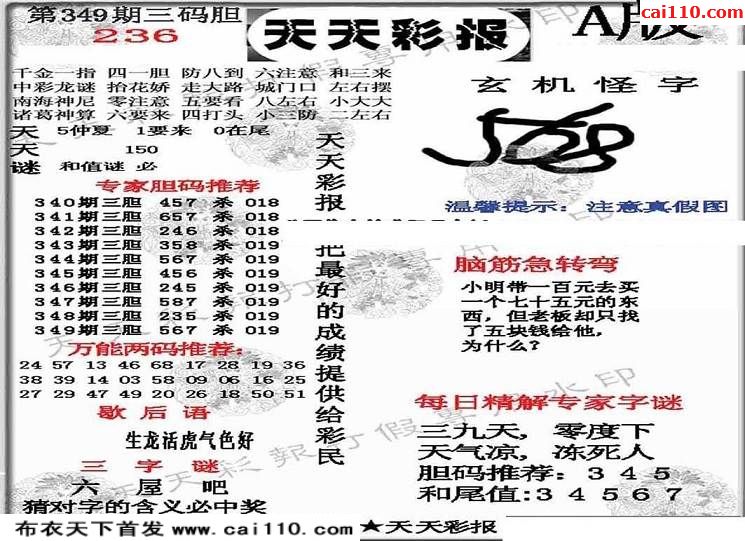 第349期三码胆
236
天天彩报
A版
cai110.com
千金一指 四一胆 防八到 六注意 和三来
中彩龙谜 抬花娇 走大路 城门口 左右摆
南海神尼 零注意 五要看 八左右 小大大
诸葛神算 六要来 四打头 小三防 二左右
天 5仲夏 1要来 0在尾
天 150
谜 和值谜 必
专家胆码推荐
340期三胆 457 杀 018
341期三胆 657 杀 018
342期三胆 246 杀 018
343期三胆 358 杀 019
344期三胆 567 杀 019
345期三胆 456 杀 019
346期三胆 245 杀 019
347期三胆 587 杀 019
348期三胆 235 杀 019
349期三胆 567 杀 019
万能两码推荐:
24 57 13 46 68 17 28 19 36
38 39 14 03 58 09 06 16 25
27 29 47 49 20 26 18 50 51
歇后语
生龙活虎气色好
三字谜
六 屋 吧
猜对字的含义必中奖
天天彩报
把最好的成绩提供给彩民
玄机怪字
温馨提示: 注意真假图
脑筋急转弯
小明带一百元去买
一个七十五元的东
西,但老板却只找
了五块钱给他,
为什么?
每日精解专家字谜
三九天,零度下
天气凉,冻死人
胆码推荐:3 4 5
和尾值:3 4 5 6 7
布衣天下首发 www.cai110.com ★天天彩报